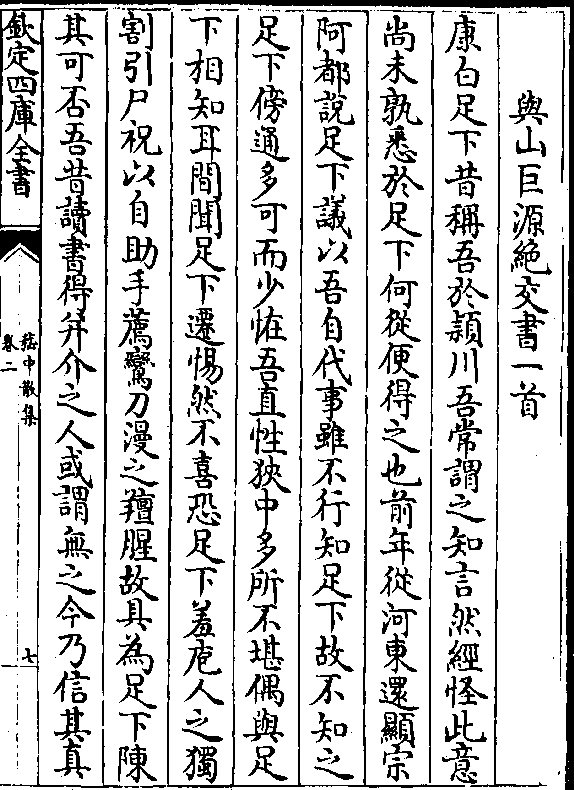 與山巨源絶交書一首
康白足下昔稱吾於潁川吾常謂之知言然經怪此意
尚未孰悉於足下何從便得之也前年從河東還顯宗
阿都說足下議以吾自代事雖不行知足下故不知之
足下傍通多可而少怪吾直性狹中多所不堪偶與足
下相知耳間聞足下遷惕然不喜恐足下羞庖人之獨
割引尸祝以自助手薦鸞刀漫之羶腥故具為足下陳
其可否吾昔讀書得并介之人或謂無之今乃信其真
欽定四庫全書
嵇中散集
卷二
七